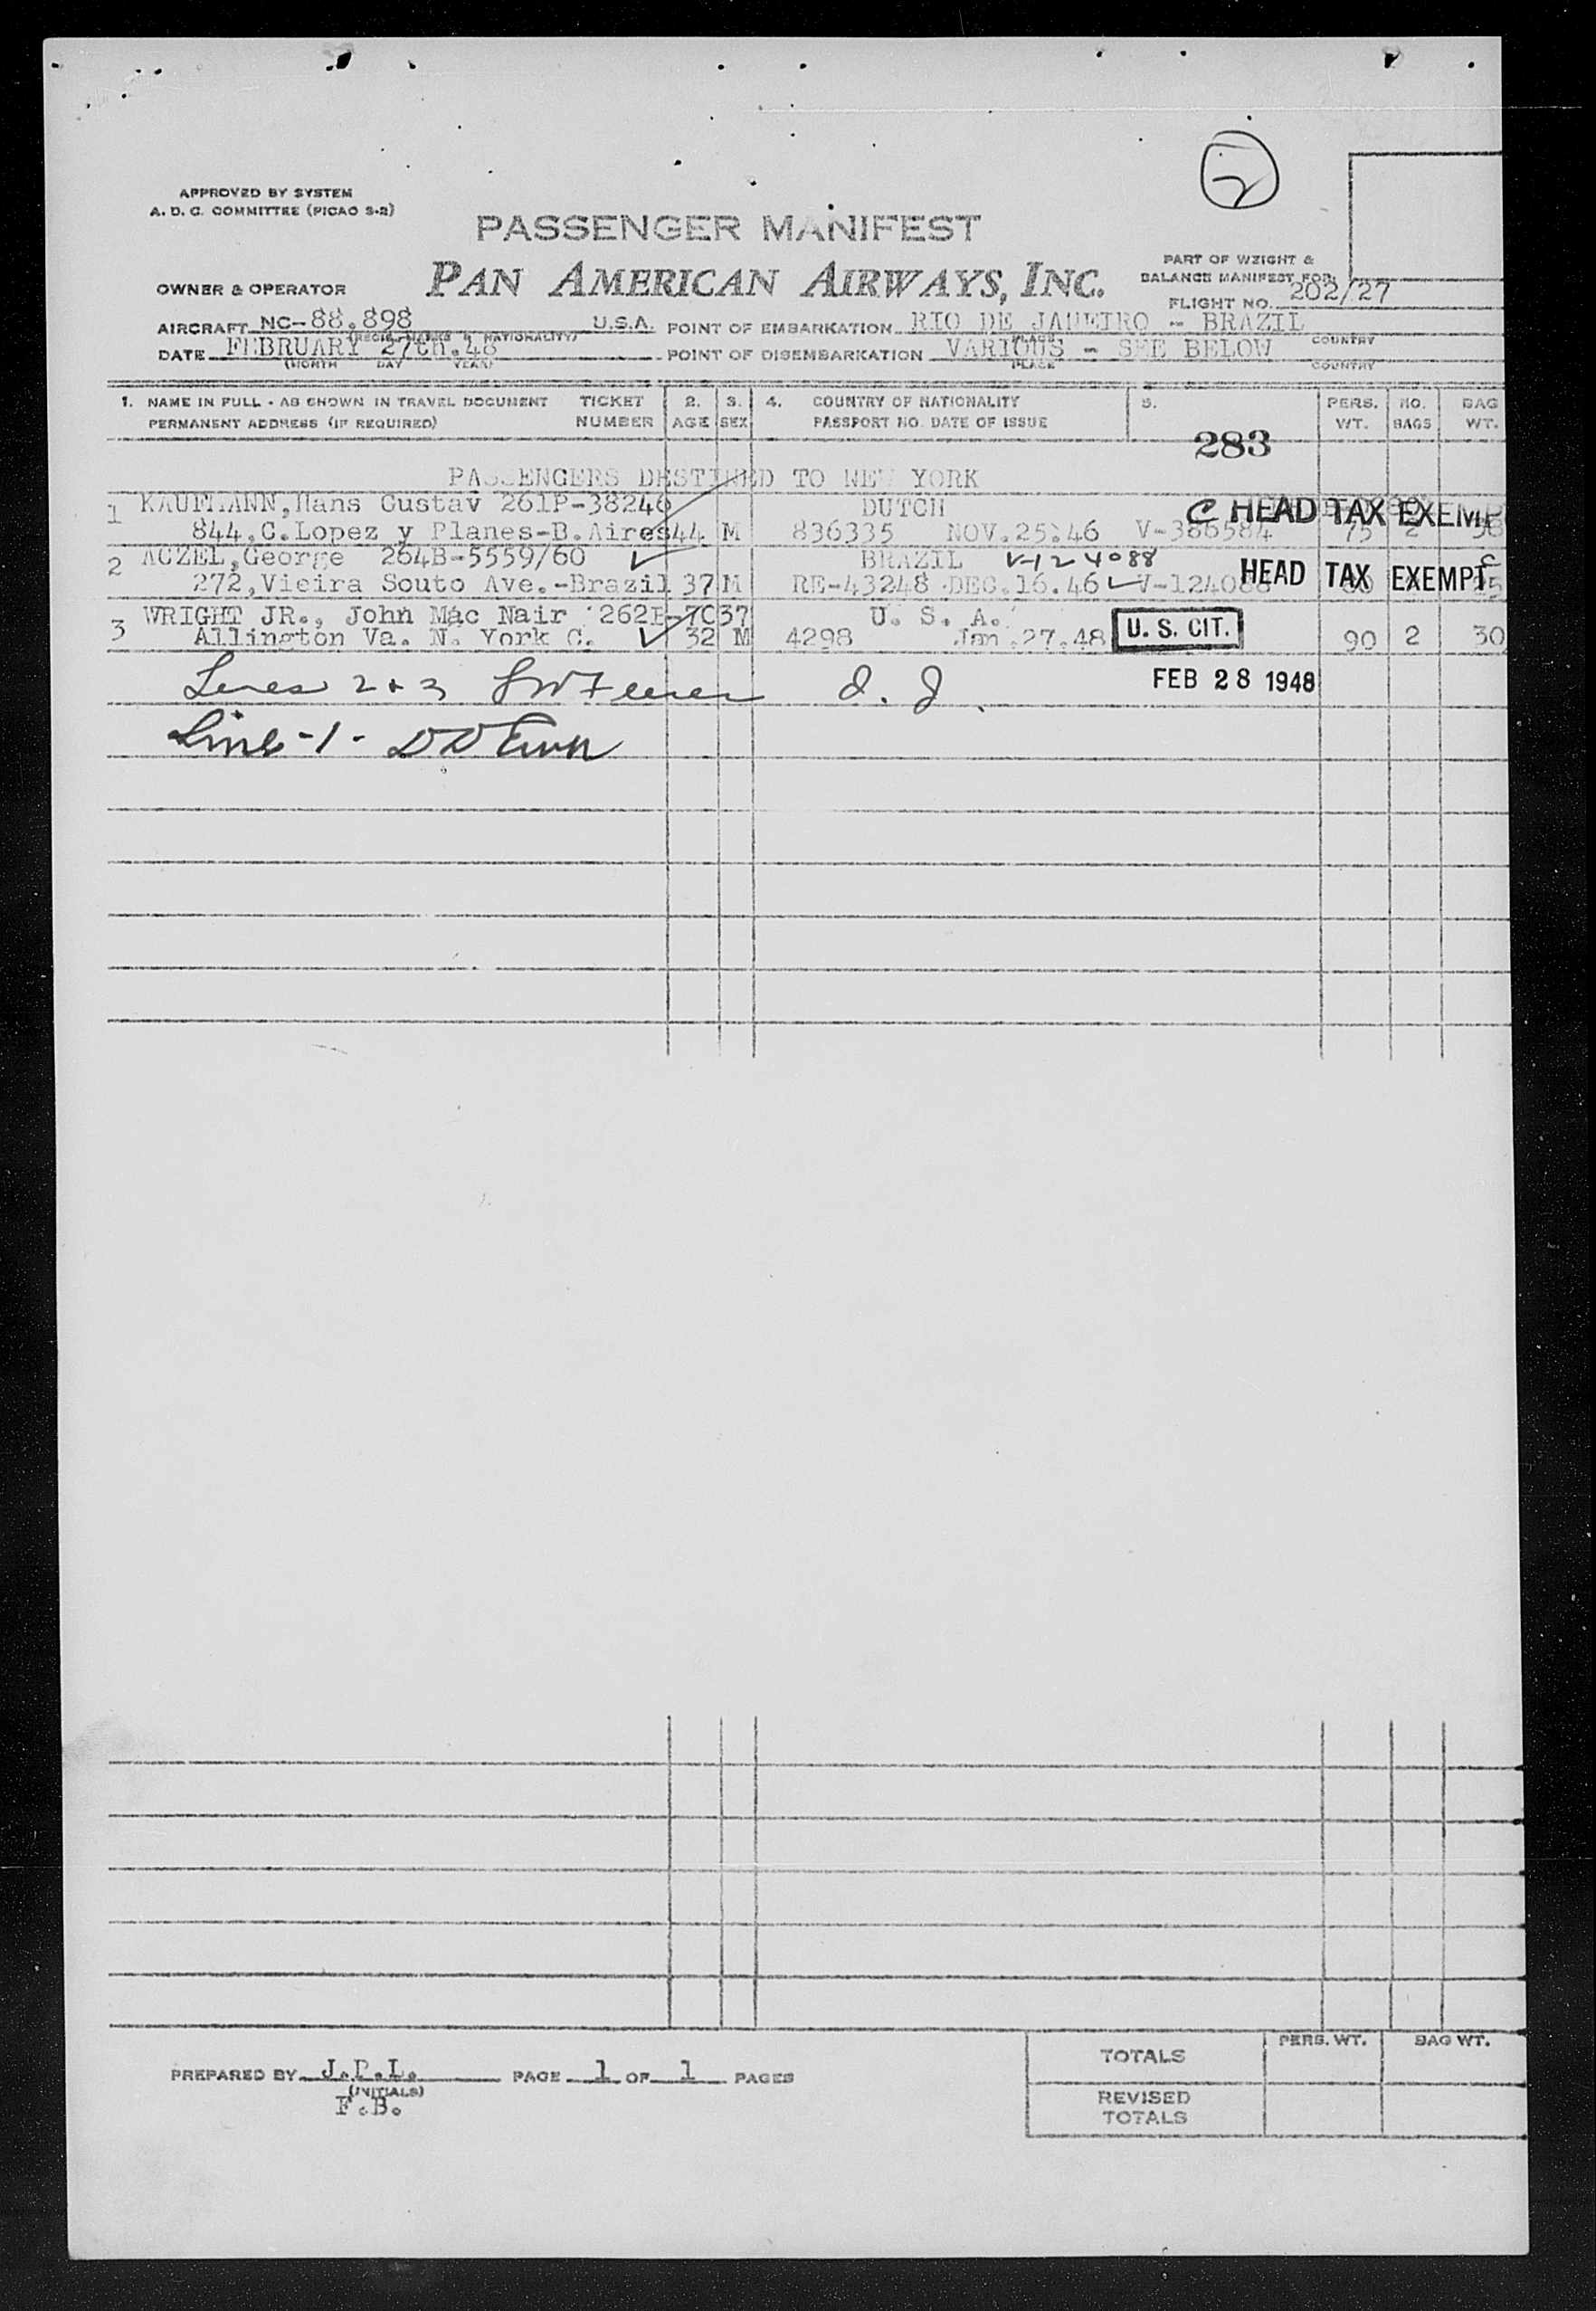 APPROVED BY SYSTEM
A. D. C. COMMITTEE (PICAO S-2)
PASSENGER MANIFEST
PAN AMERICAN AIRWAYS, INC.
PART OF WEIGHT &
BALANCE MANIFEST FOR
FLIGHT NO. 202/27
OWNER & OPERATOR
AIRCRAFT NC-88.898 U.S.A. POINT OF EMBARKATION RIO DE JANEIRO - BRAZIL
(REGIS. MARKS & NATIONALITY) PLACE COUNTRY
DATE FEBRUARY 27th.48 POINT OF DISEMBARKATION VARIOUS - SEE BELOW
(MONTH DAY YEAR) PLACE COUNTRY
1. NAME IN FULL - AS SHOWN IN TRAVEL DOCUMENT TICKET 2. 3. 4. COUNTRY OF NATIONALITY 5. PERS. NO. BAG
PERMANENT ADDRESS (IF REQUIRED) NUMBER AGE SEX PASSPORT NO. DATE OF ISSUE WT. BAGS WT.
283
PASSENGERS DESTINED TO NEW YORK
1 KAUFMANN, Hans Gustav 261P-38246 DUTCH C HEAD TAX EXEMPT
844, C. Lopez y Planes-B.Aires 44 M 836335 NOV.25.46 V-386584 75 2
2 ACZEL, George 264B-5559/60 BRAZIL V-124088
272, Vieira Souto Ave.-Brazil 37 M RE-43248 DEC.16.46 V-124088 HEAD TAX EXEMPT C
3 WRIGHT JR., John Mac Nair U. S. A.
Allington Va. N. York C. 32 M 4298 Jan.27.48 U. S. CIT. 90 2 30
Lines 2 + 3
FEB 28 1948
Line -1-
PREPARED BY PAGE 1 OF 1 PAGES
(INITIALS)
F.B.
TOTALS PERS. WT. BAG WT.
REVISED
TOTALS